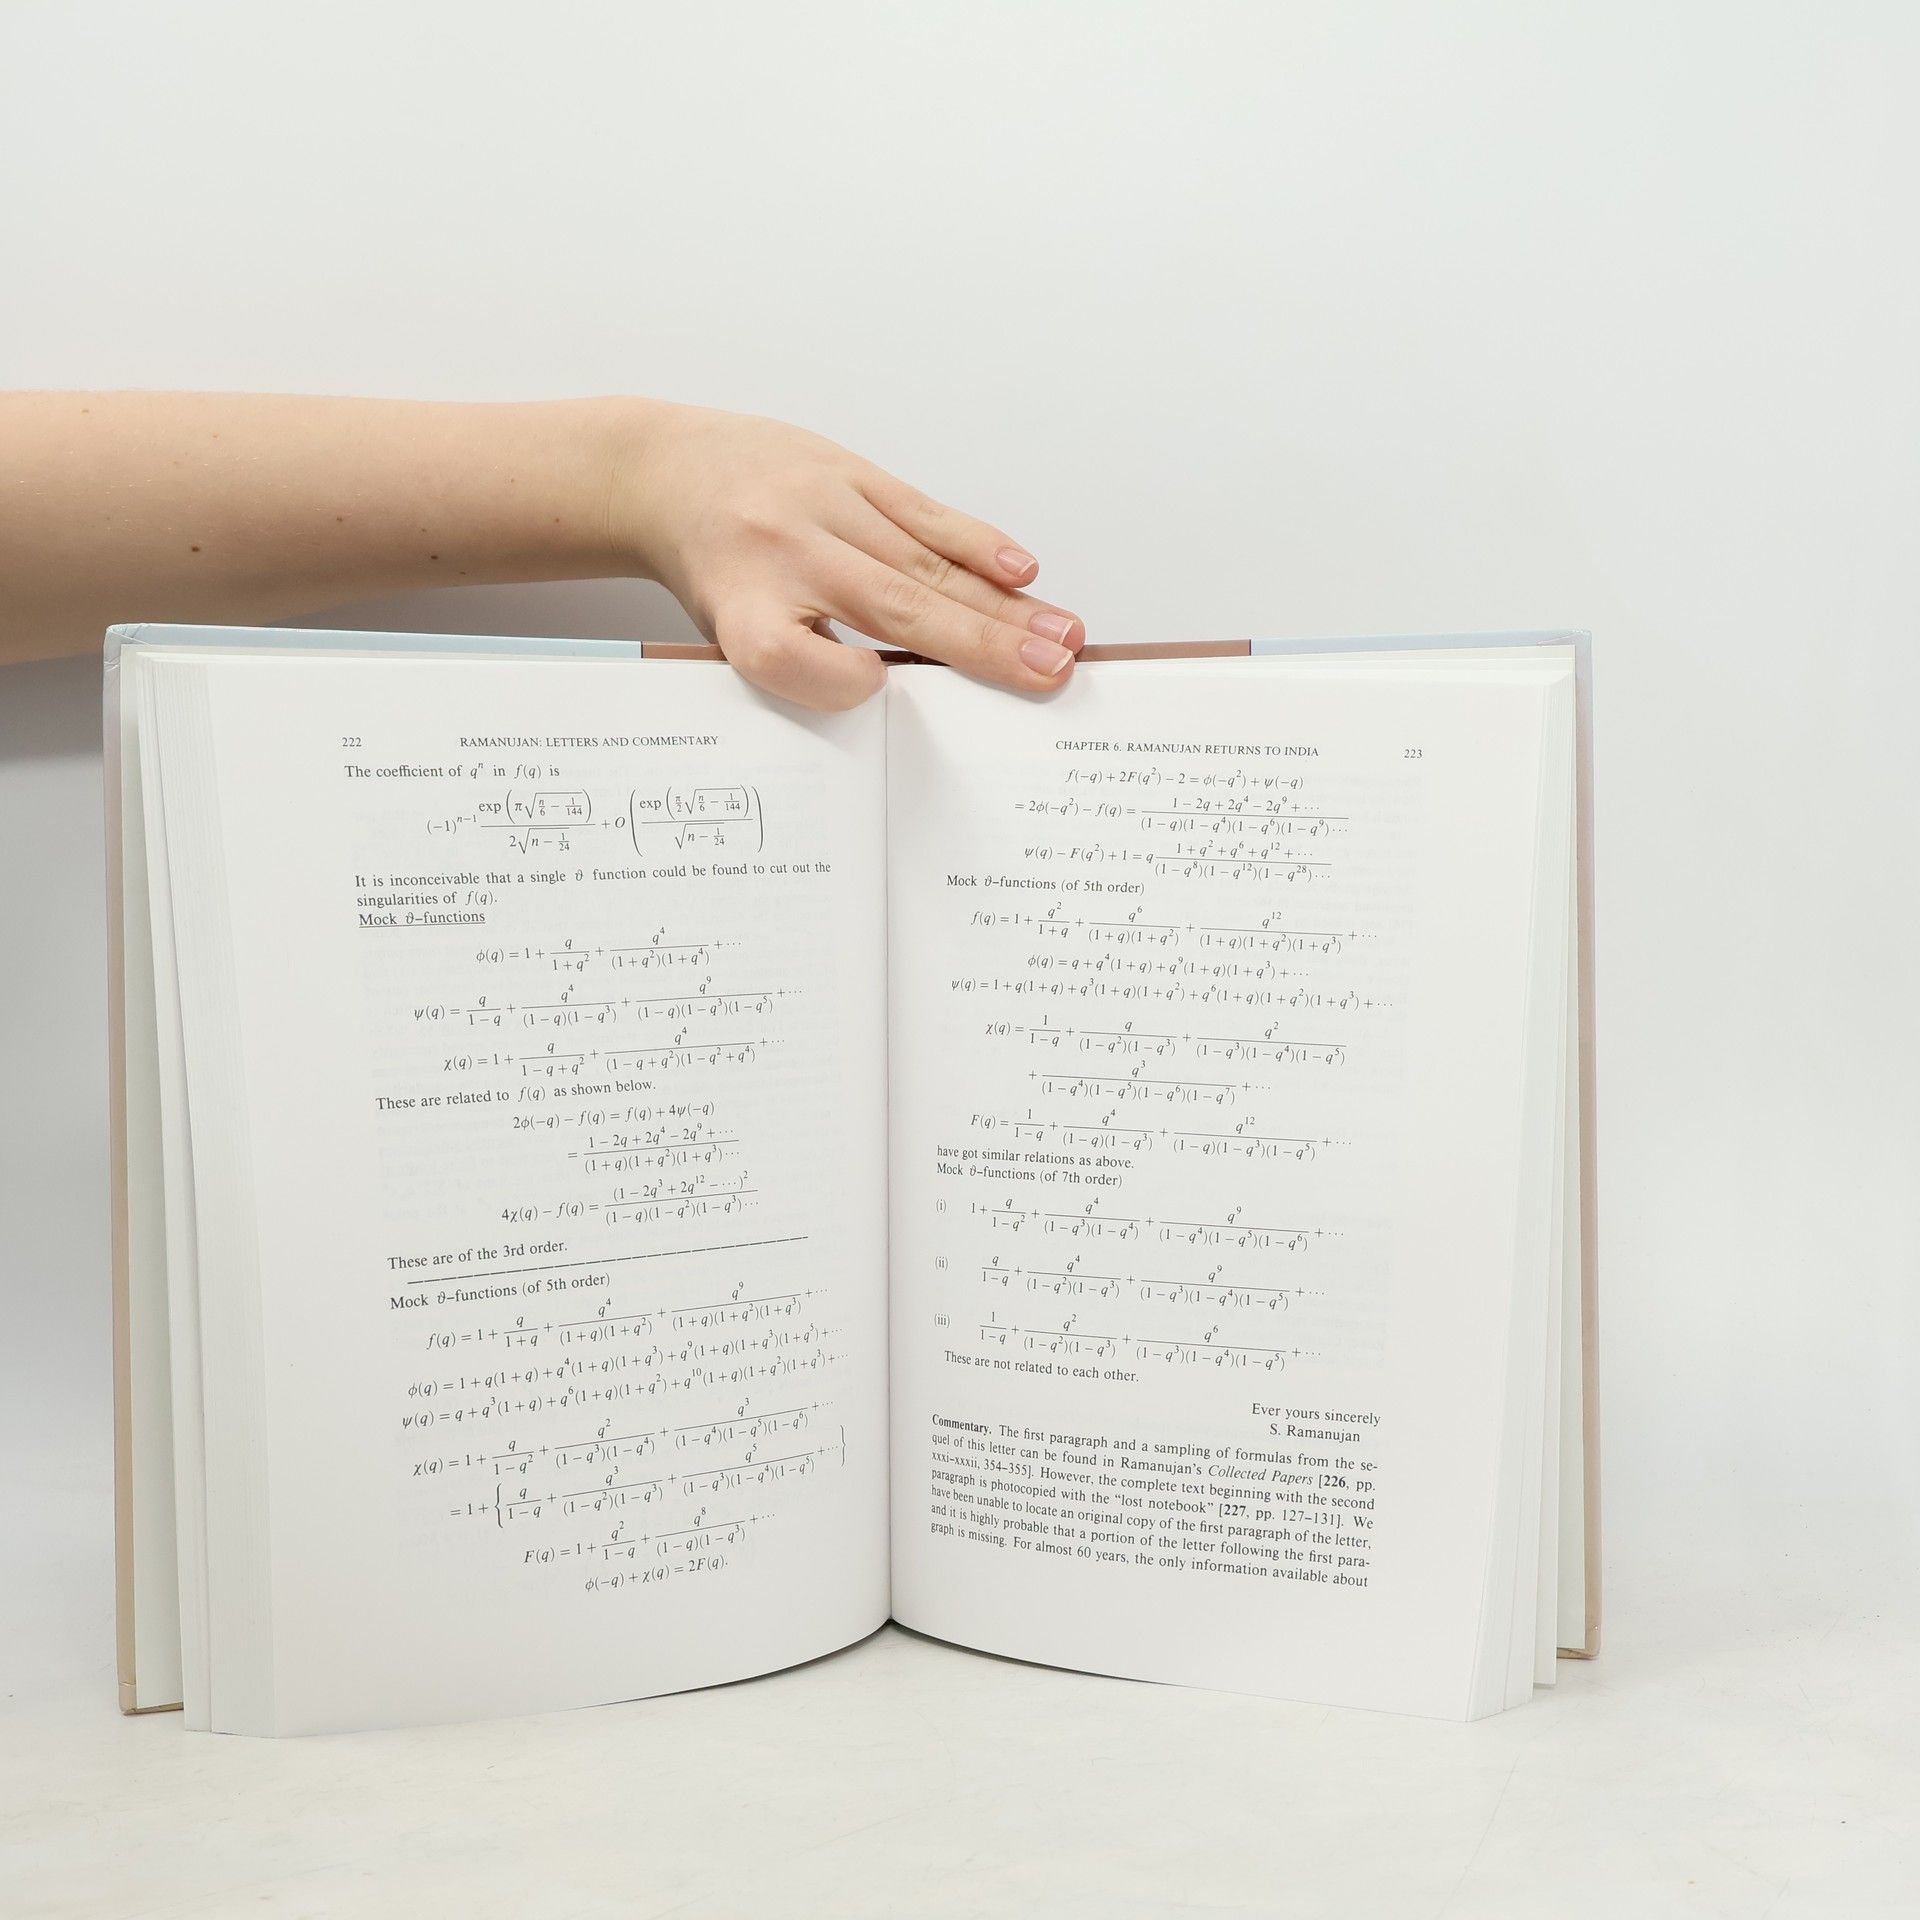 222 RAMANUJAN: LETTERS AND COMMENTARY
The coefficient of qⁿ in f(q) is
(−1)ⁿ⁻¹ exp(π√(n/6 − 1/144)) / (2√(n − 1/24)) + O(exp(π/2 √(n/6 − 1/144)) / √(n − 1/24))
It is inconceivable that a single ϑ function could be found to cut out the
singularities of f(q).
Mock ϑ–functions
ϕ(q) = 1 + q/(1+q²) + q⁴/((1+q²)(1+q⁴)) + ⋯
ψ(q) = q/(1−q) + q⁴/((1−q)(1−q³)) + q⁹/((1−q)(1−q³)(1−q⁵)) + ⋯
χ(q) = 1 + q/(1−q+q²) + q⁴/((1−q+q²)(1−q²+q⁴)) + ⋯
These are related to f(q) as shown below.
2ϕ(−q) − f(q) = f(q) + 4ψ(−q)
= (1 − 2q + 2q⁴ − 2q⁹ + ⋯)/((1+q)(1+q²)(1+q³)⋯)
4χ(q) − f(q) = (1 − 2q³ + 2q¹² − ⋯)²/((1−q)(1−q²)(1−q³)⋯)
These are of the 3rd order.
Mock ϑ–functions (of 5th order)
f(q) = 1 + q/(1+q) + q⁴/((1+q)(1+q²)) + q⁹/((1+q)(1+q²)(1+q³)) + ⋯
ϕ(q) = 1 + q(1+q) + q⁴(1+q)(1+q³) + q⁹(1+q)(1+q³)(1+q⁵) + ⋯
ψ(q) = q + q³(1+q) + q⁶(1+q)(1+q²) + q¹⁰(1+q)(1+q²)(1+q³) + ⋯
χ(q) = 1 + q/(1−q²) + q²/((1−q³)(1−q⁴)) + q³/((1−q⁴)(1−q⁵)(1−q⁶)) + ⋯
= 1 + {q/(1−q) + q³/((1−q²)(1−q³)) + q⁵/((1−q³)(1−q⁴)(1−q⁵)) + ⋯}
F(q) = 1 + q²/(1−q) + q⁸/((1−q)(1−q³)) + ⋯
ϕ(−q) + χ(q) = 2F(q).
CHAPTER 6. RAMANUJAN RETURNS TO INDIA 223
f(−q) + 2F(q²) − 2 = ϕ(−q²) + ψ(−q)
= 2ϕ(−q²) − f(q) = (1 − 2q + 2q⁴ − 2q⁹ + ⋯)/((1−q)(1−q⁴)(1−q⁶)(1−q⁹)⋯)
ψ(q) − F(q²) + 1 = q (1 + q² + q⁶ + q¹² + ⋯)/((1−q⁸)(1−q¹²)(1−q²⁸)⋯)
Mock ϑ–functions (of 5th order)
f(q) = 1 + q²/(1+q) + q⁶/((1+q)(1+q²)) + q¹²/((1+q)(1+q²)(1+q³)) + ⋯
ϕ(q) = q + q⁴(1+q) + q⁹(1+q)(1+q³) + ⋯
ψ(q) = 1 + q(1+q) + q³(1+q)(1+q²) + q⁶(1+q)(1+q²)(1+q³) + ⋯
χ(q) = 1/(1−q) + q/((1−q²)(1−q³)) + q²/((1−q³)(1−q⁴)(1−q⁵))
+ q³/((1−q⁴)(1−q⁵)(1−q⁶)(1−q⁷)) + ⋯
F(q) = 1/(1−q) + q⁴/((1−q)(1−q³)) + q¹²/((1−q)(1−q³)(1−q⁵)) + ⋯
have got similar relations as above.
Mock ϑ–functions (of 7th order)
(i) 1 + q/(1−q²) + q⁴/((1−q³)(1−q⁴)) + q⁹/((1−q⁴)(1−q⁵)(1−q⁶)) + ⋯
(ii) q/(1−q) + q⁴/((1−q²)(1−q³)) + q⁹/((1−q³)(1−q⁴)(1−q⁵)) + ⋯
(iii) 1/(1−q) + q²/((1−q²)(1−q³)) + q⁶/((1−q³)(1−q⁴)(1−q⁵)) + ⋯
These are not related to each other.
Ever yours sincerely
S. Ramanujan
Commentary. The first paragraph and a sampling of formulas from the se-
quel of this letter can be found in Ramanujan's Collected Papers [226, pp.
xxxi–xxxii, 354–355]. However, the complete text beginning with the second
paragraph is photocopied with the “lost notebook” [227, pp. 127–131]. We
have been unable to locate an original copy of the first paragraph of the letter,
and it is highly probable that a portion of the letter following the first para-
graph is missing. For almost 60 years, the only information available about